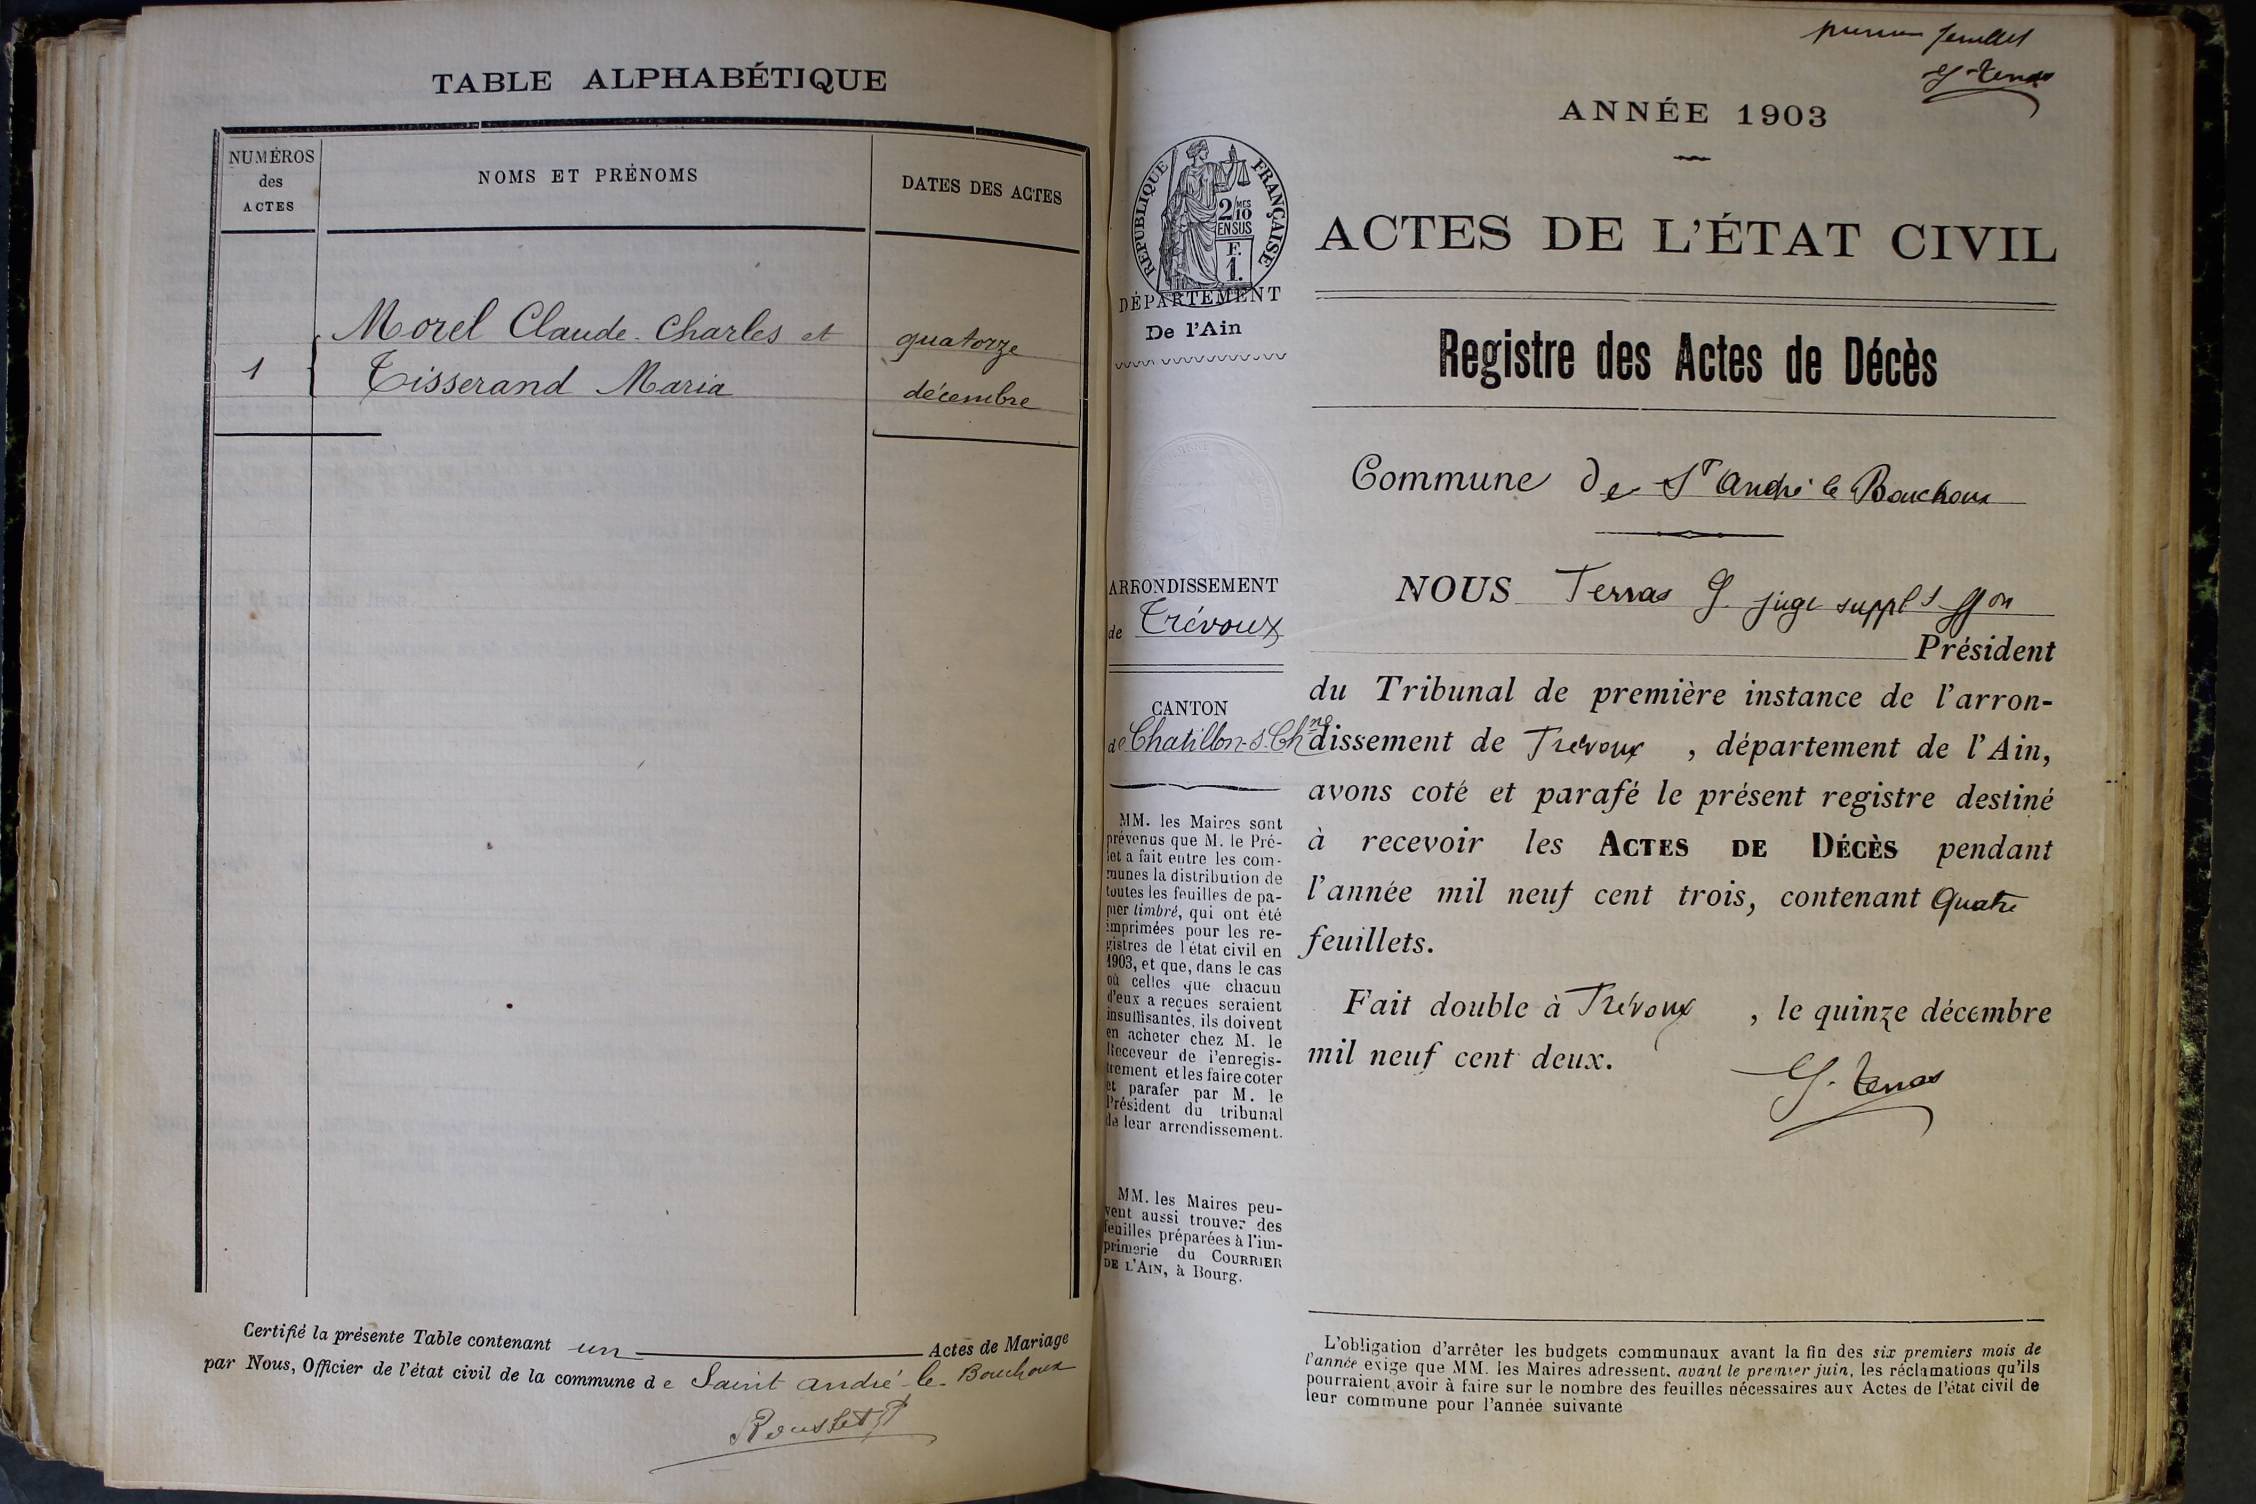 TABLE ALPHABÉTIQUE
NUMÉROS
des
ACTES
NOMS ET PRÉNOMS
DATES DES ACTES
1
Morel Claude-Charles et
Tisserand Maria
quatorze
décembre
Certifié la présente Table contenant un Actes de Mariage
par Nous, Officier de l'état civil de la commune de Saint André-le-Bouchoux
Rousset P
feuillet
G. Terras
ANNÉE 1903
RÉPUBLIQUE FRANÇAISE
2/10 MES
EN SUS
F.
1.
DÉPARTEMENT
De l'Ain
ARRONDISSEMENT
de Trévoux
CANTON
de Chatillon-s-Chne
MM. les Maires sont
prévenus que M. le Pré-
fet a fait entre les com-
munes la distribution de
toutes les feuilles de pa-
pier timbré, qui ont été
imprimées pour les re-
gistres de l'état civil en
1903, et que, dans le cas
où celles que chacun
d'eux a reçues seraient
insuffisantes, ils doivent
en acheter chez M. le
Receveur de l'enregis-
trement et les faire coter
et parafer par M. le
Président du tribunal
de leur arrondissement.
MM. les Maires peu-
vent aussi trouver des
feuilles préparées à l'im-
primerie du COURRIER
DE L'AIN, à Bourg.
ACTES DE L'ÉTAT CIVIL
Registre des Actes de Décès
Commune de St André le Bouchoux
NOUS Terras G. juge supplt ffon
Président
du Tribunal de première instance de l'arron-
dissement de Trévoux , département de l'Ain,
avons coté et parafé le présent registre destiné
à recevoir les ACTES DE DÉCÈS pendant
l'année mil neuf cent trois, contenant quatre
feuillets.
Fait double à Trévoux , le quinze décembre
mil neuf cent deux.
G. Terras
L'obligation d'arrêter les budgets communaux avant la fin des six premiers mois de
l'année exige que MM. les Maires adressent, avant le premier juin, les réclamations qu'ils
pourraient avoir à faire sur le nombre des feuilles nécessaires aux Actes de l'état civil de
leur commune pour l'année suivante